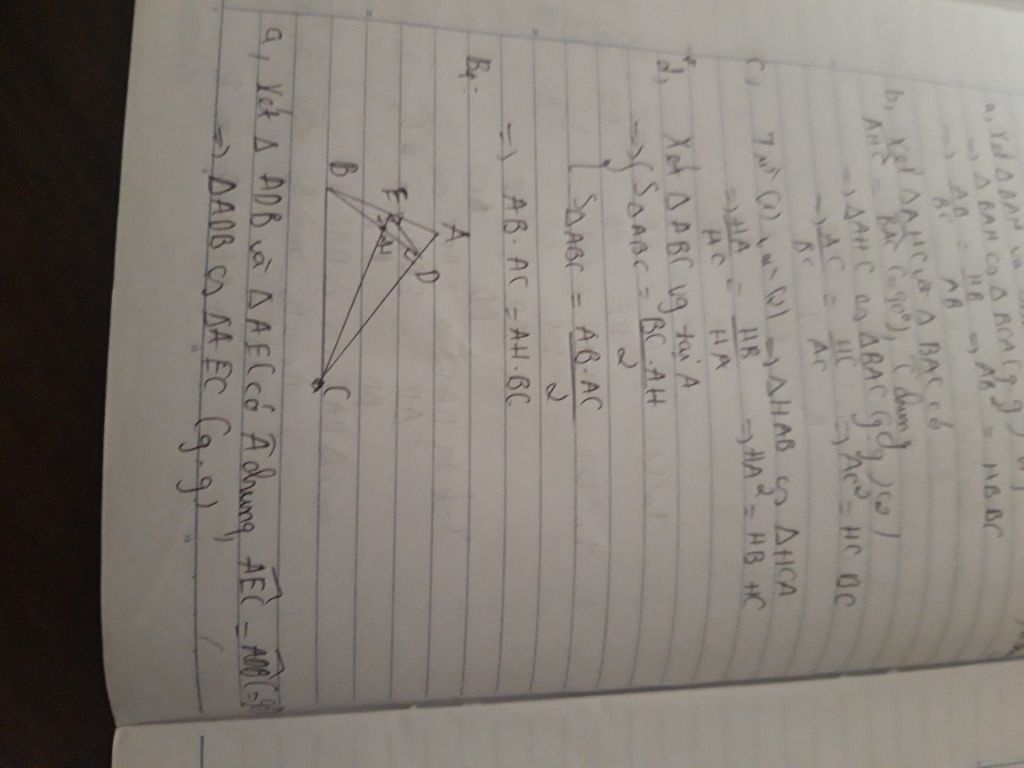 a, Xét Δ BAH và Δ
=> Δ BAH ∽ Δ BCA (g.g)
=> AB/BC = HB/AB => AB² = HB.BC
b, Xét Δ AHC và Δ BAC có
AHC = BAC (=90°), C chung
=> Δ AHC ∽ Δ BAC (g.g) (2)
=> AC/BC = HC/AC => AC² = HC.BC
c, Từ (1) và (2) => Δ HAB ∽ Δ HCA
=> HA/HC = HB/HA => HA² = HB + HC
d, Xét Δ ABC vg tại A
=> { SΔABC = BC.AH/2
SΔABC = AB.AC/2
=> AB.AC = AH.BC
A
D
E
H
B
C
a, Xét Δ ADB và Δ AEC có A chung, AEC = ADB
=> ΔADB ∽ ΔAEC (g.g)